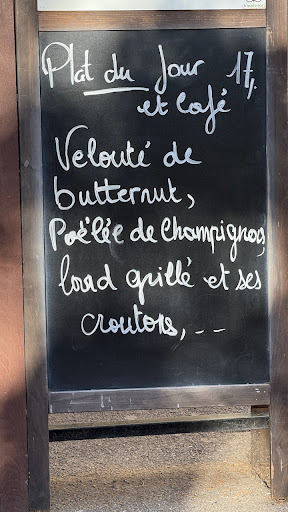 Plat du Jour 17,
et café
Velouté de
butternut,
Poëlée de Champignons,
lard grillé et ses
croutons, --